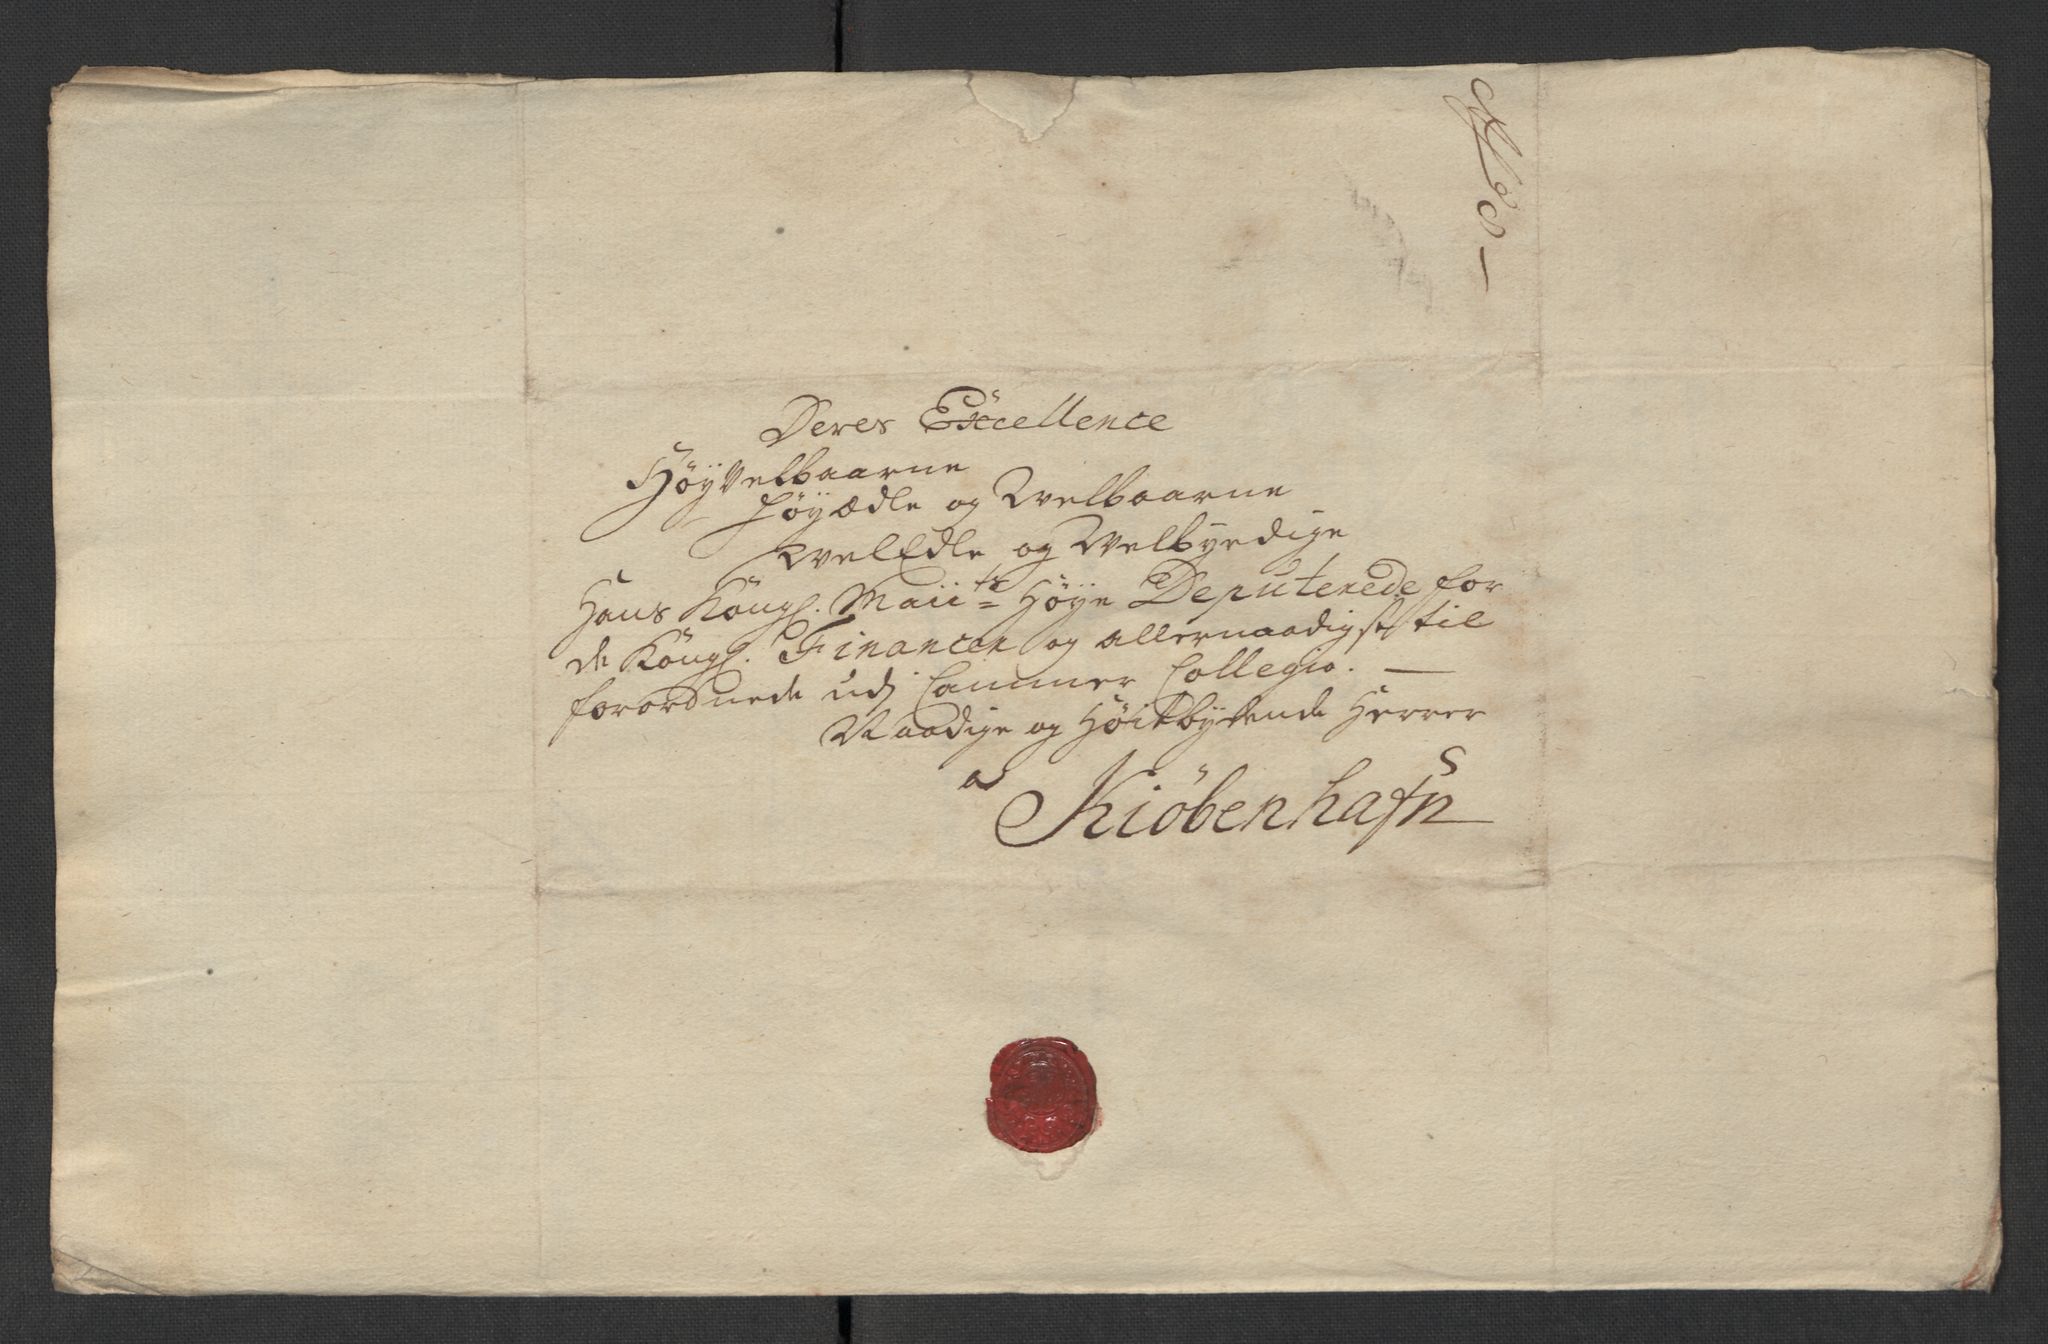 Deres Excellence
Höyvelbaarne
Höyædle og Welbaarne
WelEdle og Welbyrdige
Hans Kongl. Maiits Höye Deputerede for
de Kongl. Financer og allernaadigst til
forordnede udj Cammer Collegio. —
Naadige og Höitbydende Herrer
a
Kiöbenhafn